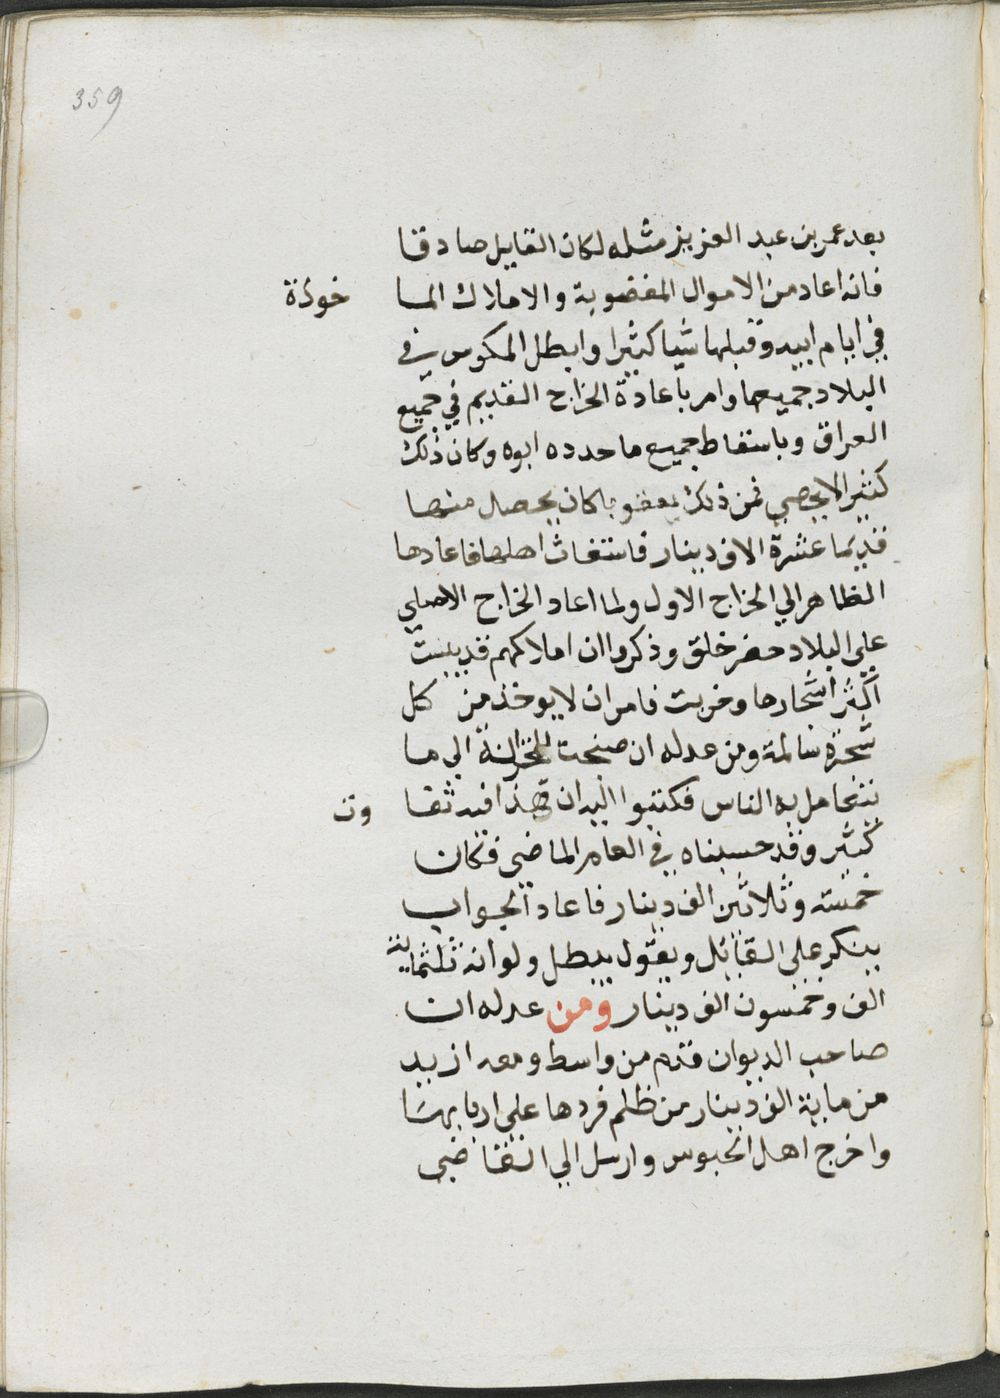 359
بعد عمر بن عبد العزيز مثله لكان القايل صادقا
فانه اعاد من الاموال المغضوبة والاملاك الما خوذة
في ايام ابيه وقبلها شيا كثيرا وابطل المكوس في
البلاد جميعها وامر باعادة الخراج القديم في جميع
العراق وباسقاط جميع ما حدده ابوه وكان ذلك
كثير الا يحصي فمن ذلك بعقوبا كان يحصل منها
قديما عشرة الاف دينار فاستغاث اهلها فاعادها
الظاهر الي الخراج الاول ولما اعاد الخراج الاصلي
علي البلاد حضر خلق وذكروا ان املاكهم قد يبست
اكثر اشجارها وخربت فامر ان لا يوخذ من كل
شجرة سالمة ومن عدله ان صنجت للخزانة الي ما
يتعامل به الناس فكتبوا اليه ان هذا فيه تفا وت
كثير وقد حسبناه في العام الماضي فكان
خمسة وثلاثين الف دينار فاعاد الجواب
ينكر علي القايل ويقول يبطل ولو انه ثلثماية
الف وخمسون الف دينار ومن عدله ان
صاحب الديوان قدم من واسط ومعه ازيد
من ماية الف دينار من ظلم فردها علي اربابها
واخرج اهل الحبوس وارسل الي القاضي